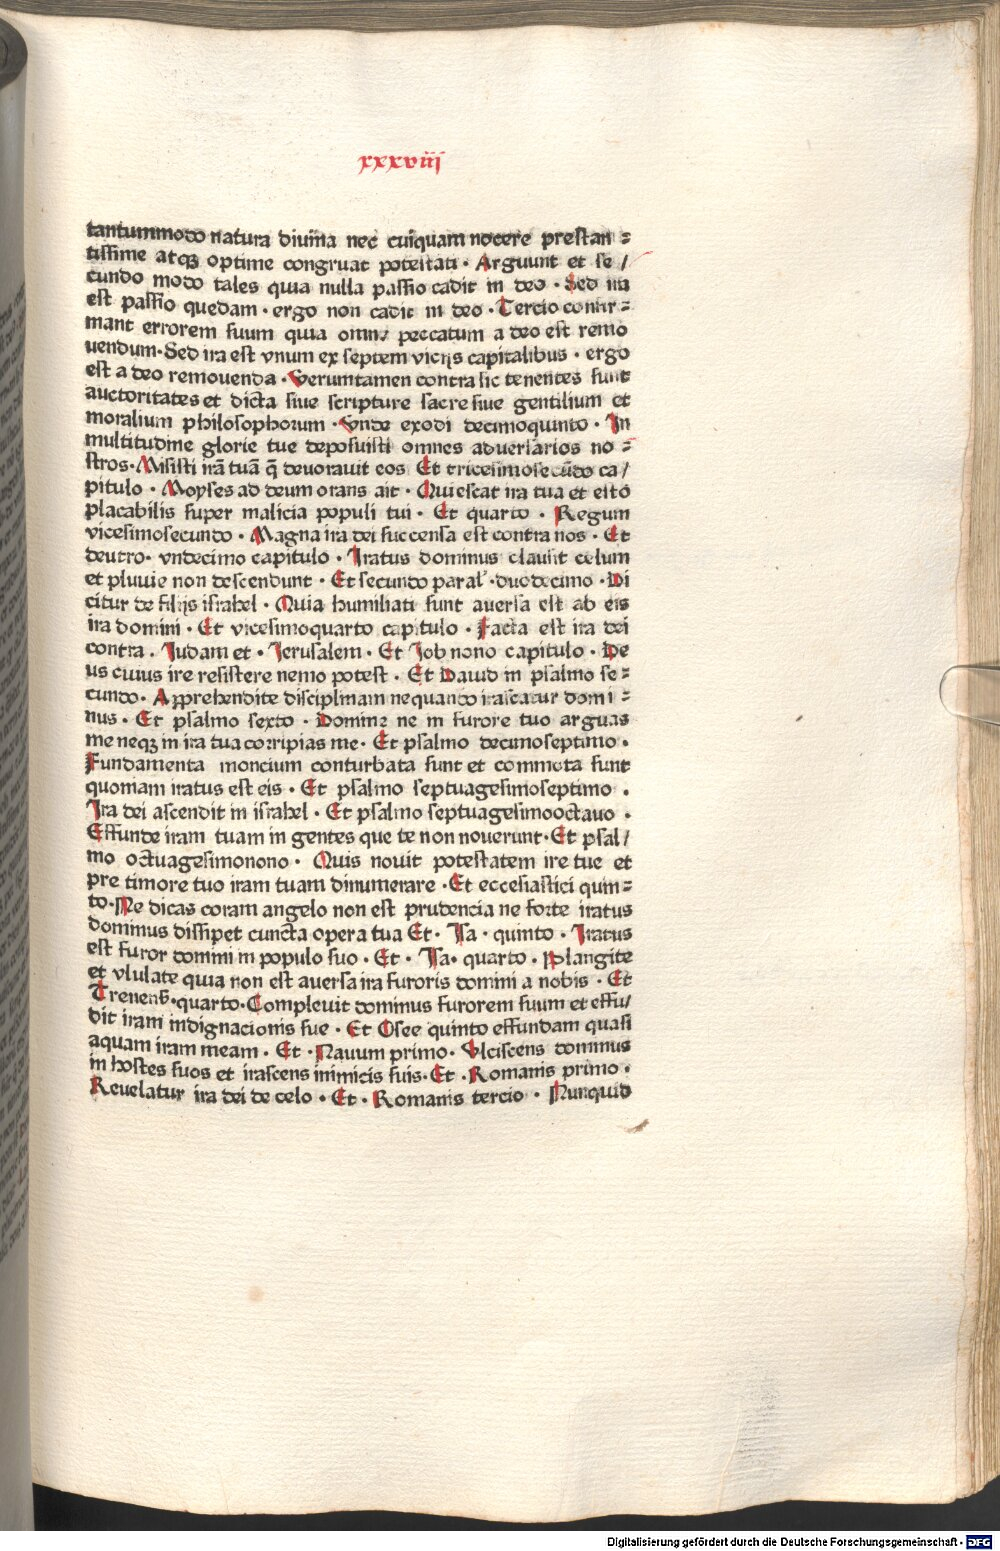 xxxviij
tantummodo natura diuina nec cuiquam nocere prestan=
tissime atqꝫ optime congruat potestati · Arguunt et se/
cundo modo tales quia nulla passio cadit in deo · Sed ira
est passio quedam · ergo non cadit in deo · Tercio confir=
mant errorem suum quia omne peccatum a deo est remo
uendum · Sed ira est vnum ex septem vicijs capitalibus · ergo
est a deo remouenda · Veruntamen contra sic tenentes sunt
auctoritates et dicta siue scripture sacre siue gentilium et
moralium philosophorum · Vnde exodi decimoquinto · In
multitudine glorie tue deposuisti omnes aduersarios no=
stros · Misisti irã tuã q̃ deuorauit eos Et tricesimosecũdo ca/
pitulo · Moyses ad deum orans ait · Quiescat ira tua et esto
placabilis super malicia populi tui · Et quarto · Regum
vicesimosecundo · Magna ira dei succensa est contra nos · Et
deutro · vndecimo capitulo · Iratus dominus clausit celum
et pluuie non descendunt · Et secundo paralˀ · duodecimo · Di
citur de filijs israhel · Quia humiliati sunt auersa est ab eis
ira domini · Et vicesimoquarto capitulo · Facta est ira dei
contra · Iudam et · Ierusalem · Et Iob nono capitulo · De
us cuius ire resistere nemo potest · Et Dauid in psalmo se=
cundo · Apprehendite disciplinam nequando irascatur domi=
nus · Et psalmo sexto · Domine ne in furore tuo arguas
me neqꝫ in ira tua corripias me · Et psalmo decimoseptimo ·
Fundamenta moncium conturbata sunt et commota sunt
quoniam iratus est eis · Et psalmo septuagesimoseptimo ·
Ira dei ascendit in israhel · Et psalmo septuagesimooctauo ·
Effunde iram tuam in gentes que te non nouerunt · Et psal/
mo octuagesimonono · Quis nouit potestatem ire tue et
pre timore tuo iram tuam dinumerare · Et ecclesiastici quin=
to · Ne dicas coram angelo non est prudencia ne forte iratus
dominus dissipet cuncta opera tua Et · Isa · quinto · Iratus
est furor domini in populo suo · Et · Isa · quarto · Plangite
et vlulate quia non est auersa ira furoris domini a nobis · Et
Trenen̄ · quarto · Compleuit dominus furorem suum et effu/
dit iram indignacionis sue · Et Osee quinto effundam quasi
aquam iram meam · Et · Nauum primo · Vlciscens dominus
in hostes suos et irascens inimicis suis · Et · Romanis primo ·
Reuelatur ira dei de celo · Et · Romanis tercio · Nunquid
Digitalisierung gefördert durch die Deutsche Forschungsgemeinschaft - DFG